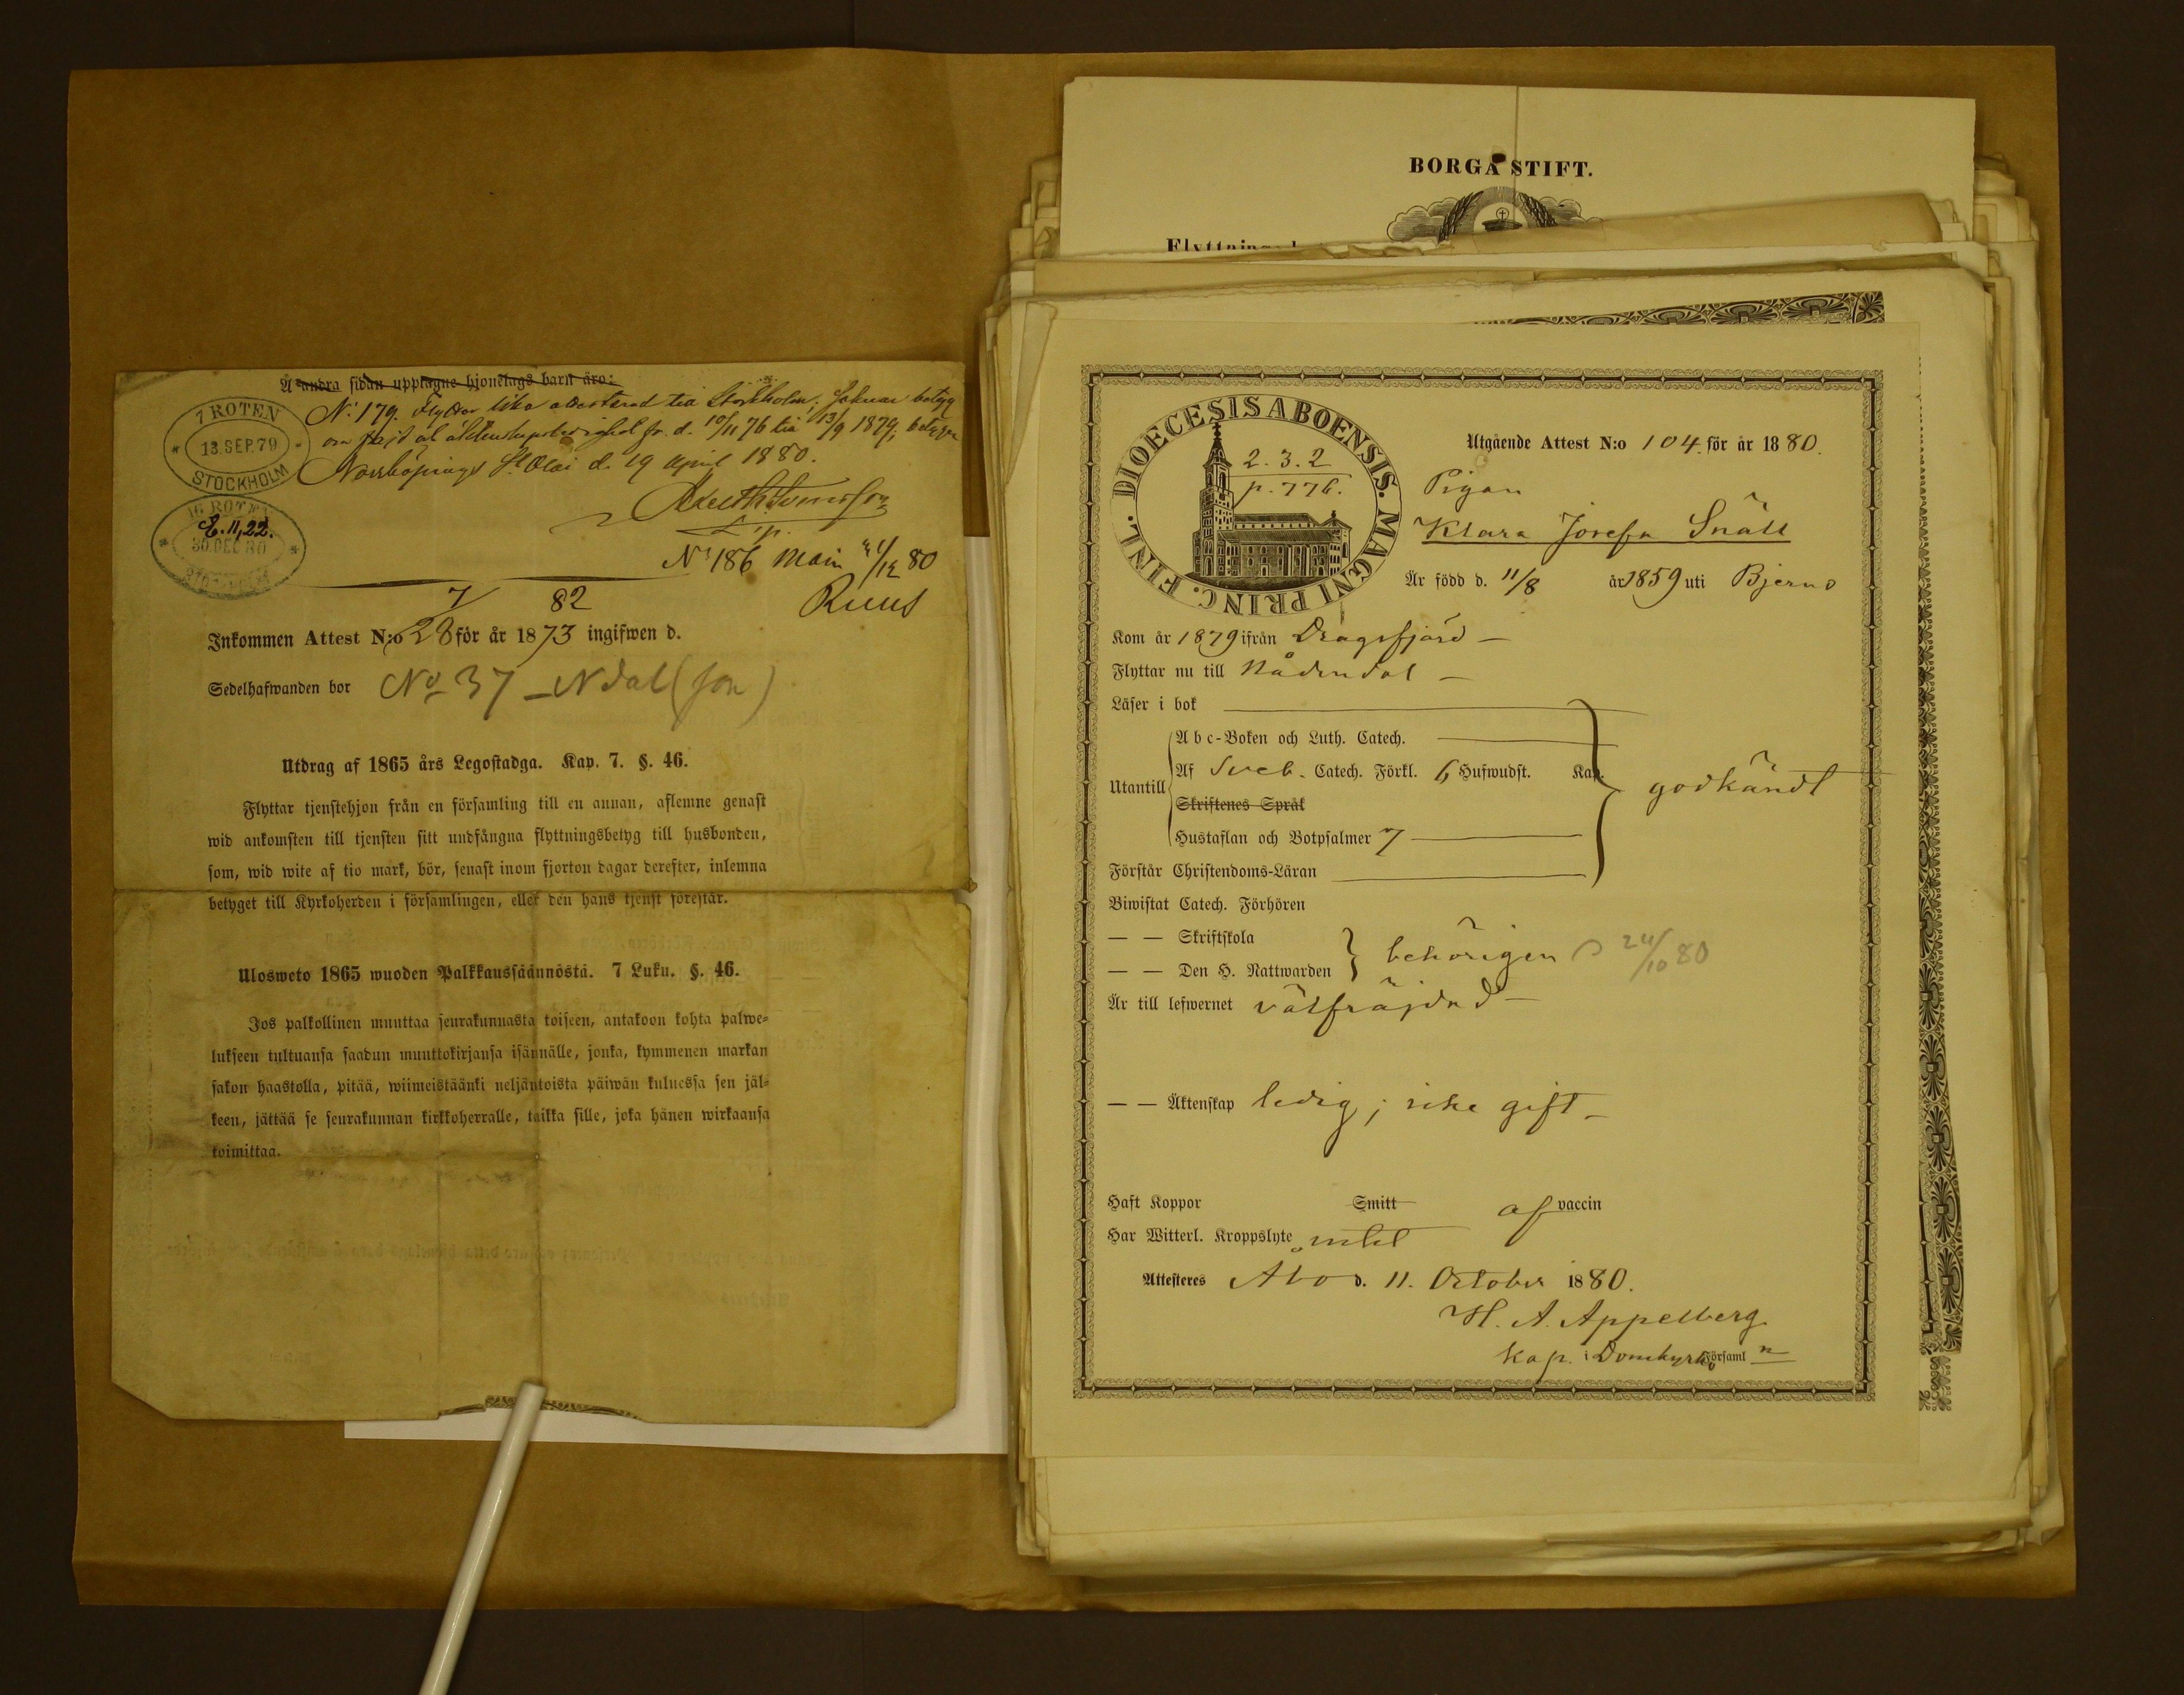 Å andra sidan upptagne hjonelags barn äro:
7 ROTEN
13. SEP. 79
STOCKHOLM
No 179. Flyttar lika attesterad till Stockholm. Saknar betyg
om frejd äktenskapsledighet fr. d. 10/11 76 till 13/9 1879; betygar
Norrköpings St Olai d. 19 April 1880.
16 ROTEN
E. 11,22.
30. DEC 80
STOCKHOLM
No 186 80
7 82
Inkommen Attest N:o 28 för år 1873 ingifwen d.
Sedelhafwanden bor No 37 – Ndal (son)
Utdrag af 1865 års Legostadga. Kap. 7. §. 46.
Flyttar tjenstehjon från en församling till en annan, aflemne genast
wid ankomsten till tjensten sitt undfångna flyttningsbetyg till husbonden,
som, wid wite af tio mark, bör, senast inom fjorton dagar derefter, inlemna
betyget till Kyrkoherden i församlingen, eller den hans tjenst förestår.
Ulosweto 1865 wuoden Palkkaussäännöstä. 7 Luku. §. 46.
Jos palkollinen muuttaa seurakunnasta toiseen, antakoon kohta palwe-
lukseen tultuansa saadun muuttokirjansa isännälle, jonka, kymmenen markan
sakon haastolla, pitää, wiimeistäänki neljäntoista päiwän kuluessa sen jäl-
keen, jättää se seurakunnan kirkkoherralle, taikka sille, joka hänen wirkaansa
toimittaa.
BORGÅ STIFT.
DIOECESIS ABOENSIS. MAGNI PRINC. FINL.
2. 3. 2
p. 776.
Utgående Attest N:o 104. för år 1880.
Pigan
Klara Josefa Snäll
Är född d. 11/8 år 1859 uti Bjerno
Kom år 1879 ifrån Dragsfjärd –
Flyttar nu till Nådendal –
Läser i bok
Utantill
Abc-Boken och Luth. Catech.
Af Sveb. Catech. Förkl. 6 Hufwudst. Kap.
Skriftenes Språk
Hustaflan och Botpsalmer 7
godkändt
Förstår Christendoms-Läran
Biwistat Catech. Förhören
— — Skriftskola
— — Den H. Nattwarden
behörigen 24/10 80
Är till lefwernet välfräjdad –
— — Äktenskap ledig; icke gift –
Haft Koppor Smitt af vaccin
Har Witterl. Kroppslyte intet
Attesteres Åbo d. 11. October 1880.
H. A. Appelberg
Kap. i Domkyrko Församl n